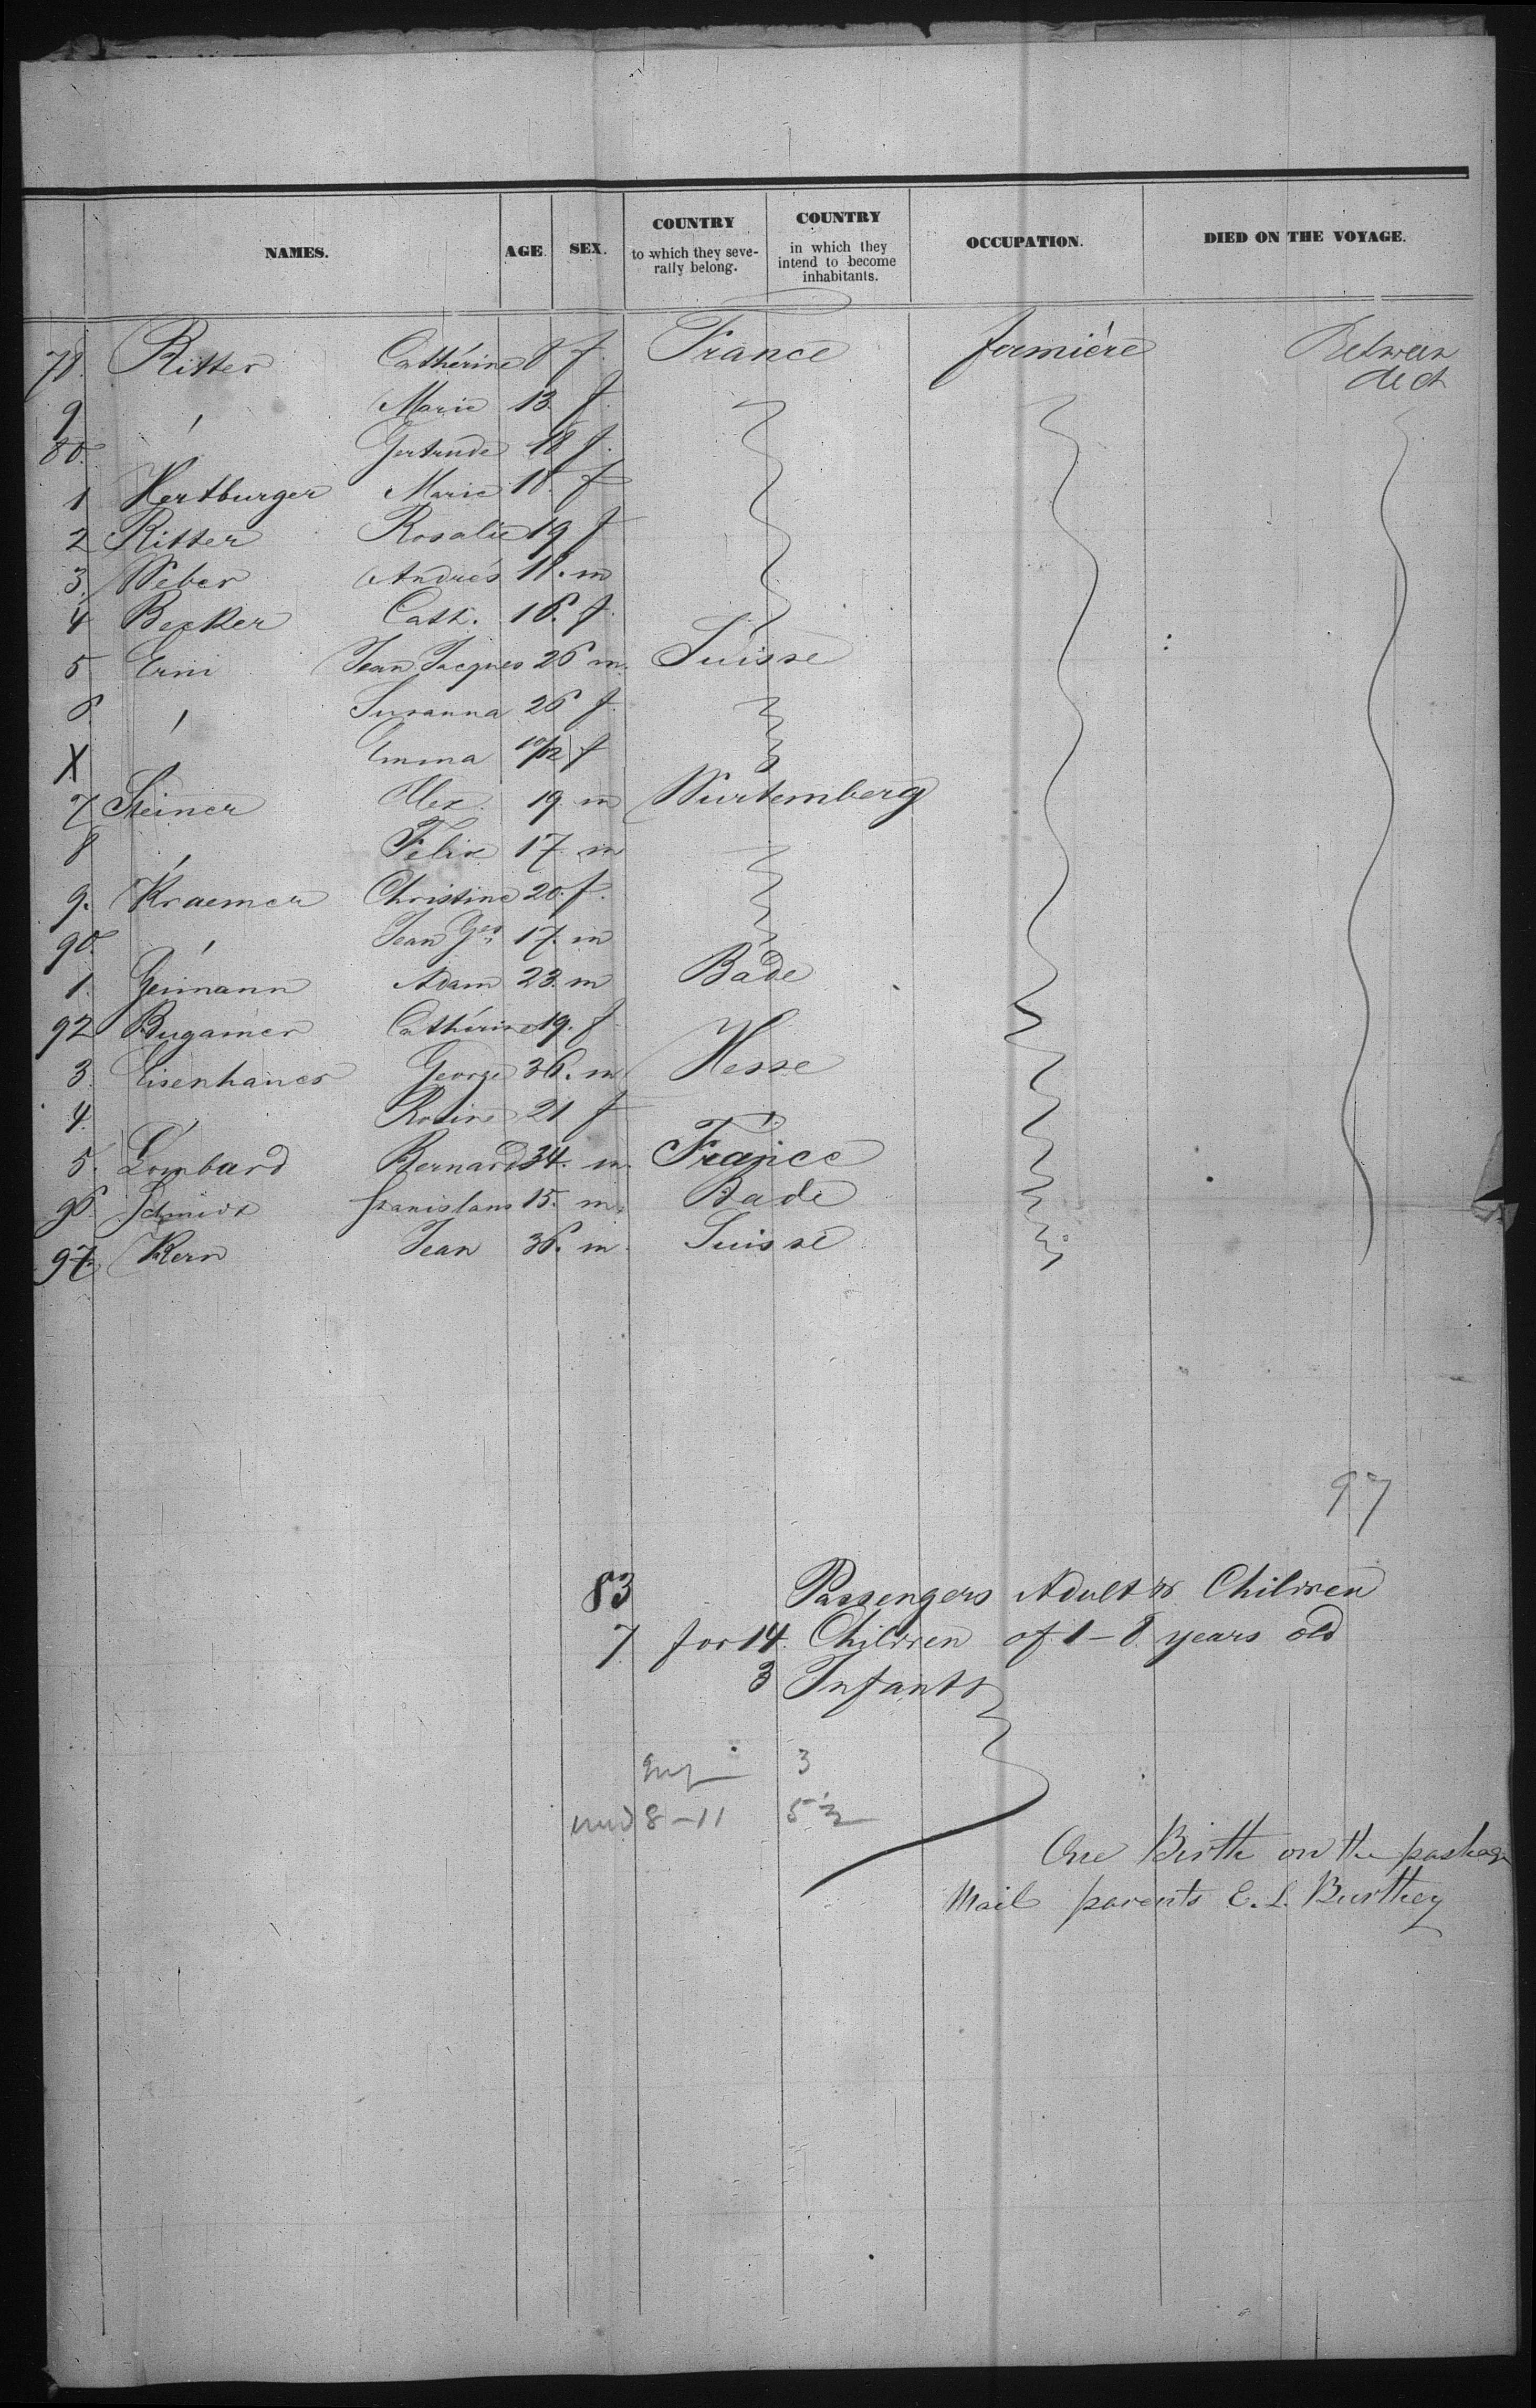 NAMES. AGE. SEX. COUNTRY to which they severally belong. COUNTRY in which they intend to become inhabitants. OCCUPATION. DIED ON THE VOYAGE.
78. Ritter Cathérine 8 f. France fermière Between deck
9 " Marie 13 f.
80. Gertrude 18 f.
1 Hertburger Marie 18. f
2 Ritter Rosalie 19 f
3. Weber Andrés 18. m
4 Becker Cath. 16. f.
5 Erni Jean Jacques 26 m. Suisse
6. " Susanna 26 f.
X Emma 10/12 f
7 Steiner Alex. 19 m Wurtemberg
8 " Felix 17 m
9. Kraemer Christine 20. f.
90. " Jean Geo 17. m
1. Geimann Adam 23. m Bade
92 Bugamer Cathérine 19. f
3. Eisenhaues George 36. m Hesse
4. " Rosine 21 f
5. Lombard Bernard 34. m. France
96. Schmidt Stanislaus 15. m. Bade
97. Kern Jean 36. m. Suisse
97
83 Passengers Adult & Children
7 for 14. Children of 1–8 years old
3 Infants
3
und 8–11 5½
One Birth on the passage
Mail parents E. L. Burthey